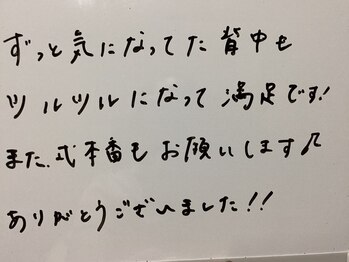 ずっと気になってた背中も
ツルツルになって満足です!
また、式本番もお願いします♪
ありがとうございました!!